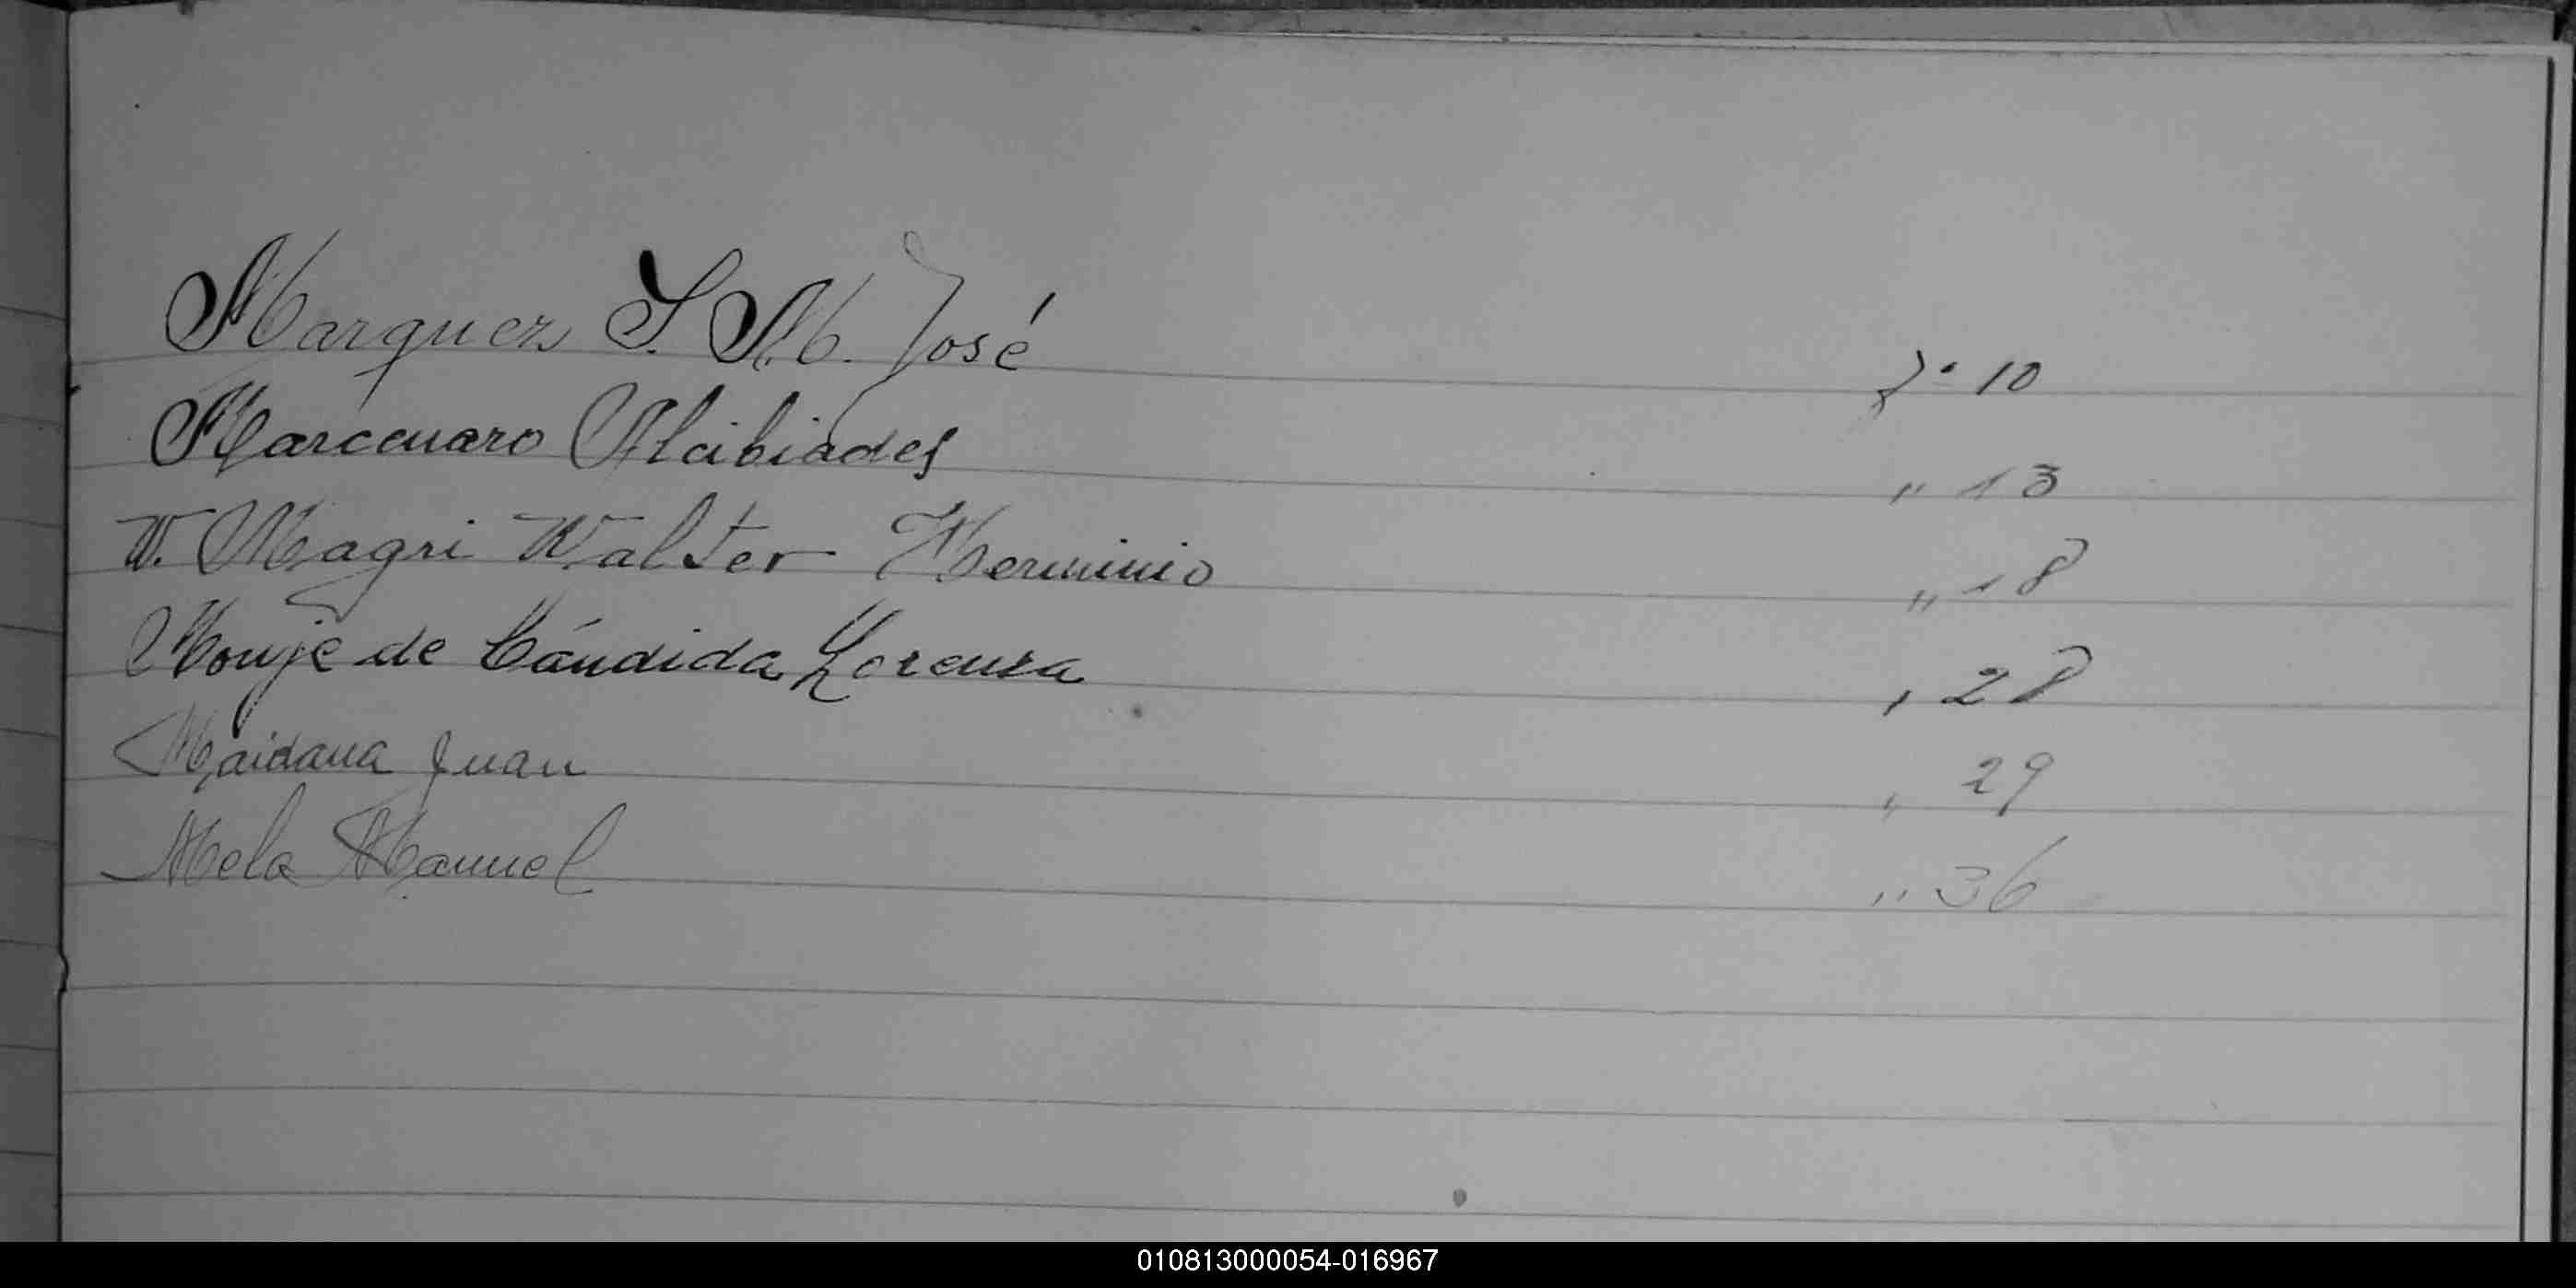 Marquez S. M. José fº 10
Marcenaro Alcibiades " 13
W. Magri Walter Herminio " 18
Monje de Cándida Lorenza " 28
Maidana Juan " 29
Mela Manuel " 36
010813000054-016967